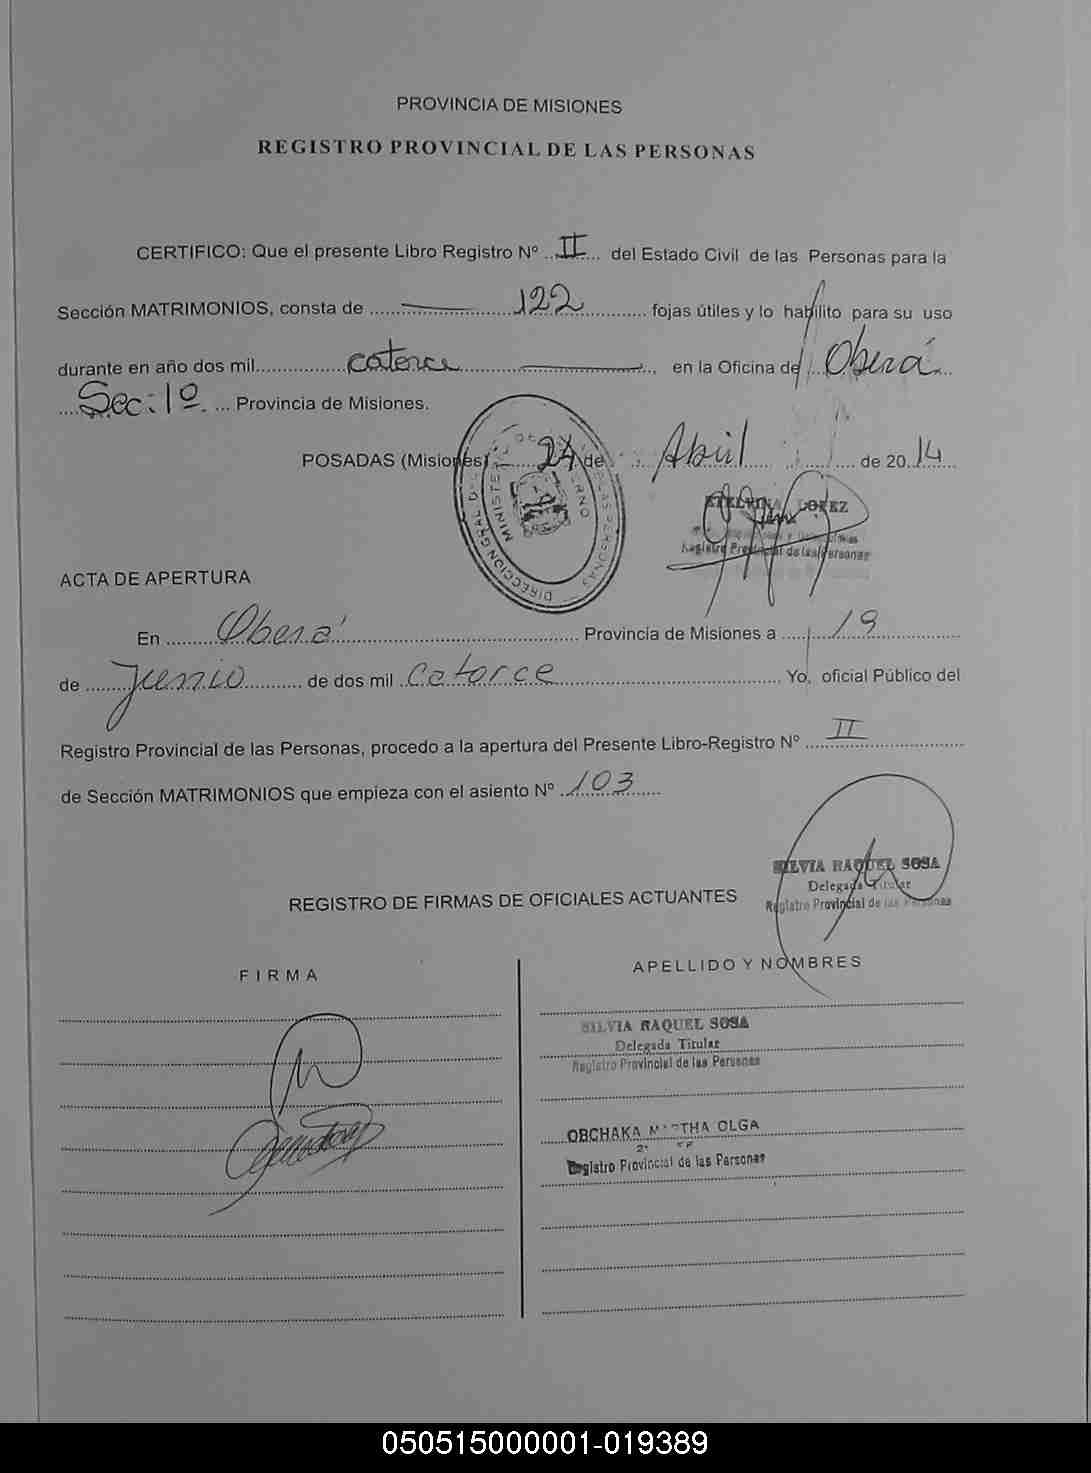 PROVINCIA DE MISIONES
REGISTRO PROVINCIAL DE LAS PERSONAS
CERTIFICO: Que el presente Libro Registro Nº ..II.... del Estado Civil de las Personas para la
Sección MATRIMONIOS, consta de ........ 122 ........ fojas útiles y lo habilito para su uso
durante en año dos mil........ catorce ........ en la Oficina de ... Oberá...
.... Sec: 1º. ... Provincia de Misiones.
POSADAS (Misiones) ...... 24 de ... Abril ...... de 20.14....
ETELVINA LOPEZ
Registro Provincial de las Personas
DIRECCION GRAL DE LAS PERSONAS
MINISTERIO DE GOBIERNO
ACTA DE APERTURA
En ........ Oberá ........ Provincia de Misiones a ..... 19 ........
de ...... Junio ........ de dos mil .. catorce ........ Yo, oficial Público del
Registro Provincial de las Personas, procedo a la apertura del Presente Libro-Registro Nº .... II ........
de Sección MATRIMONIOS que empieza con el asiento Nº .. 103 .....
SILVIA RAQUEL SOSA
Delegada Titular
Registro Provincial de las Personas
REGISTRO DE FIRMAS DE OFICIALES ACTUANTES
FIRMA
APELLIDO Y NOMBRES
SILVIA RAQUEL SOSA
Delegada Titular
Registro Provincial de las Personas
OBCHAKA MARTHA OLGA
Registro Provincial de las Personas
050515000001-019389